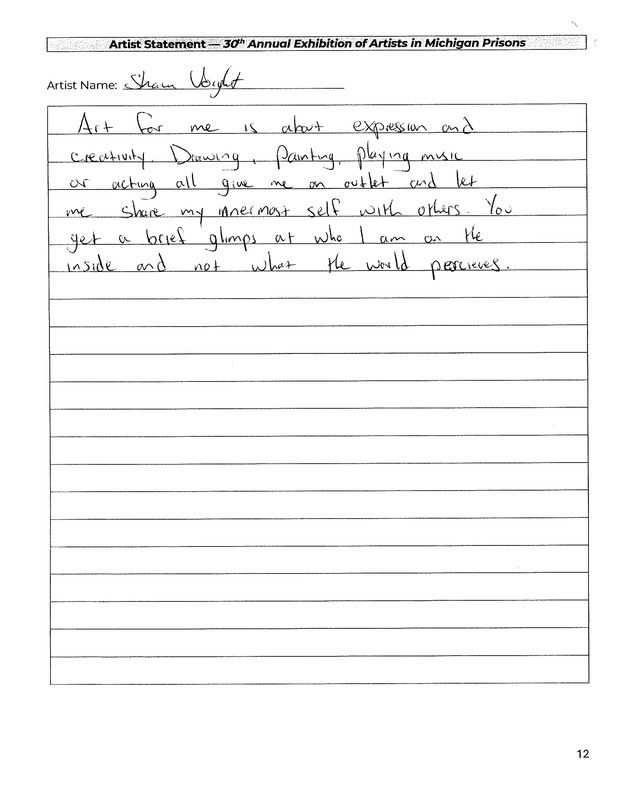 Artist Statement — 30th Annual Exhibition of Artists in Michigan Prisons
Artist Name:
Art for me is about expression and
creativity. Drawing, Painting, playing music
or acting all give me an outlet and let
me share my innermost self with others. You
get a brief glimps at who I am on the
inside and not what the world percieves.
12